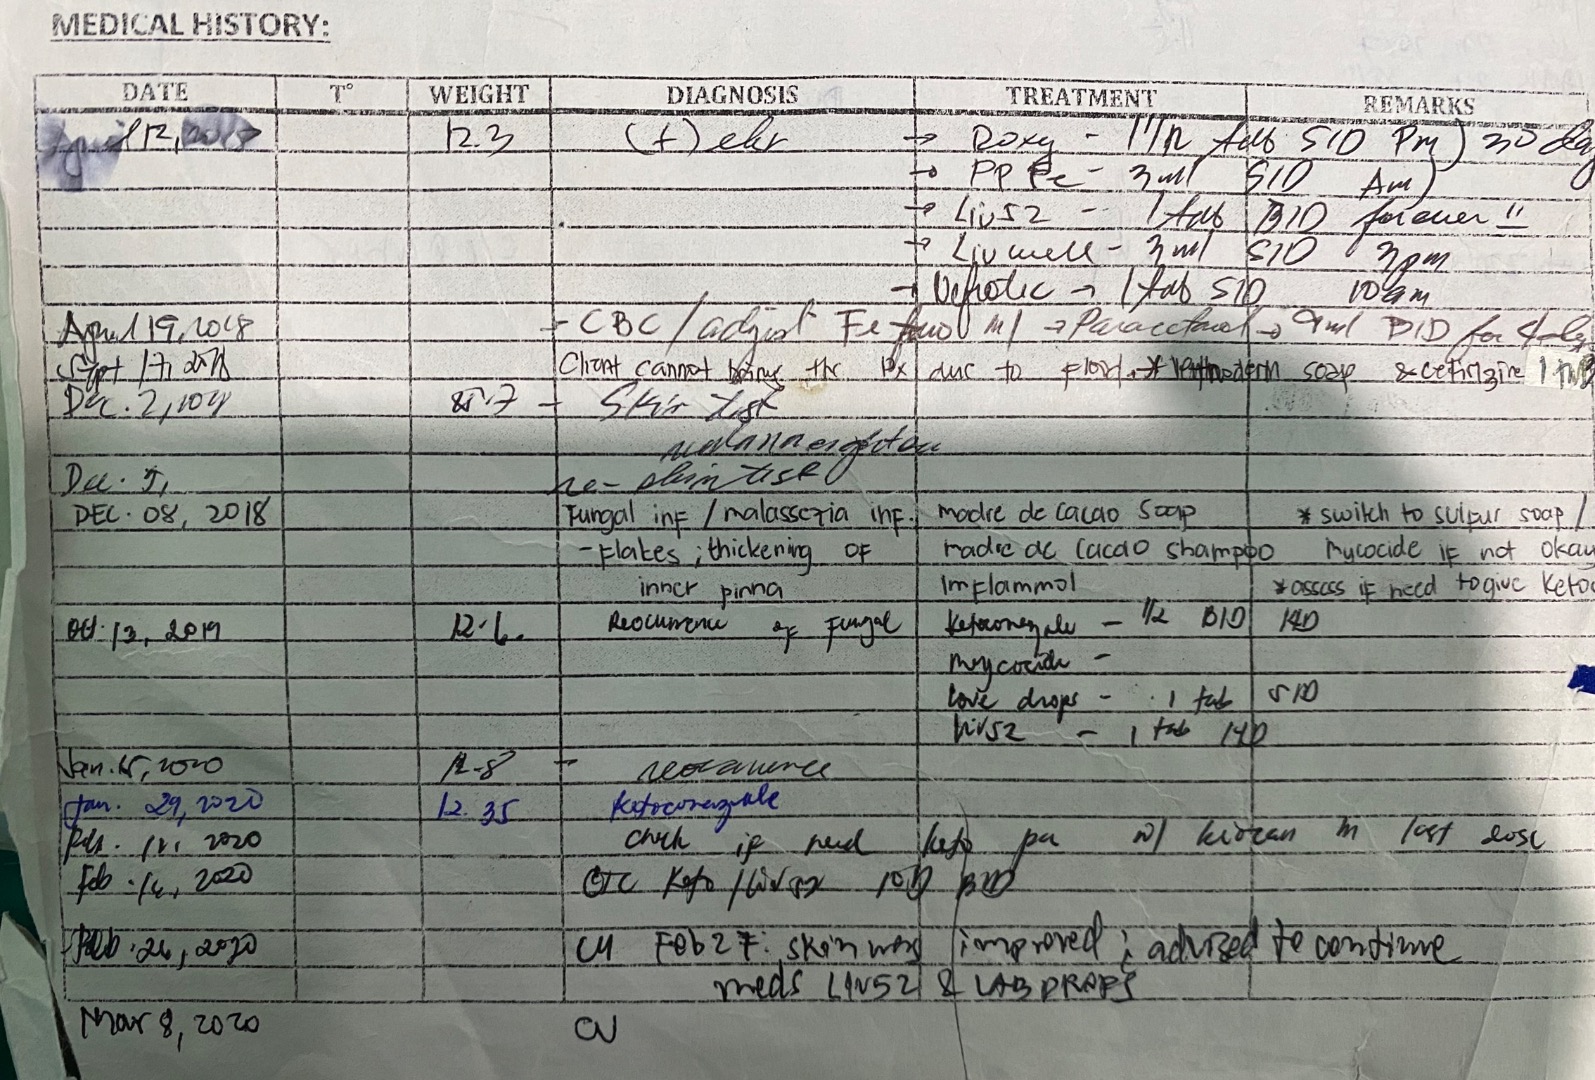 MEDICAL HISTORY:
DATE T° WEIGHT DIAGNOSIS TREATMENT REMARKS
April 12, 12.3 (+) ehr → Doxy - 1 1/2 tab SID Pm) 30 day
→ PP Fe - 3ml SID Am)
→ Liv52 - 1 tab BID forever !!
→ Livwell - 3ml SID 3pm
→ Nefrotec → 1 tab SID 10am
April 19, 2018 - CBC / adjust Fe → Paracetamol → 9ml BID for
Sept 17, 2018 Client cannot bring the Px due to flood. * soap & cetirizine 1
Dec. 2, - Skin test
Dec. 5, re-skin test
DEC. 08, 2018 Fungal inf / malassezia inf. madre de cacao soap * switch to sulfur soap /
- flakes ; thickening OF madre de cacao shampoo mycocide if not okay
inner pinna Imflammol * assess if need to give Keto
Oct. 13, 2019 12.6. Reocurrence of Fungal Ketoconazole - 1/2 BID 14D
mycocide -
Love drops - 1 tab SID
Liv52 - 1 tab 14D
Jan. 15, 2020 12.8 - reoccurence
Jan. 29, 2020 12.35 Ketoconazole
Feb. 2020 check if need keto pa w/ last dose
Feb. 14, 2020 OTC Keto / Liv52 10D BID
Feb. 26, 2020 CU Feb 27: skin was improved ; advised to continue
meds LIV52 & LAB DRAPS
Mar 8, 2020 CU